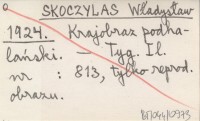 SKOCZYLAS Władysław
1924. Krajobraz podha-
lański. — Tyg. Il.
nr : 813, tylko reprod.
obrazu.